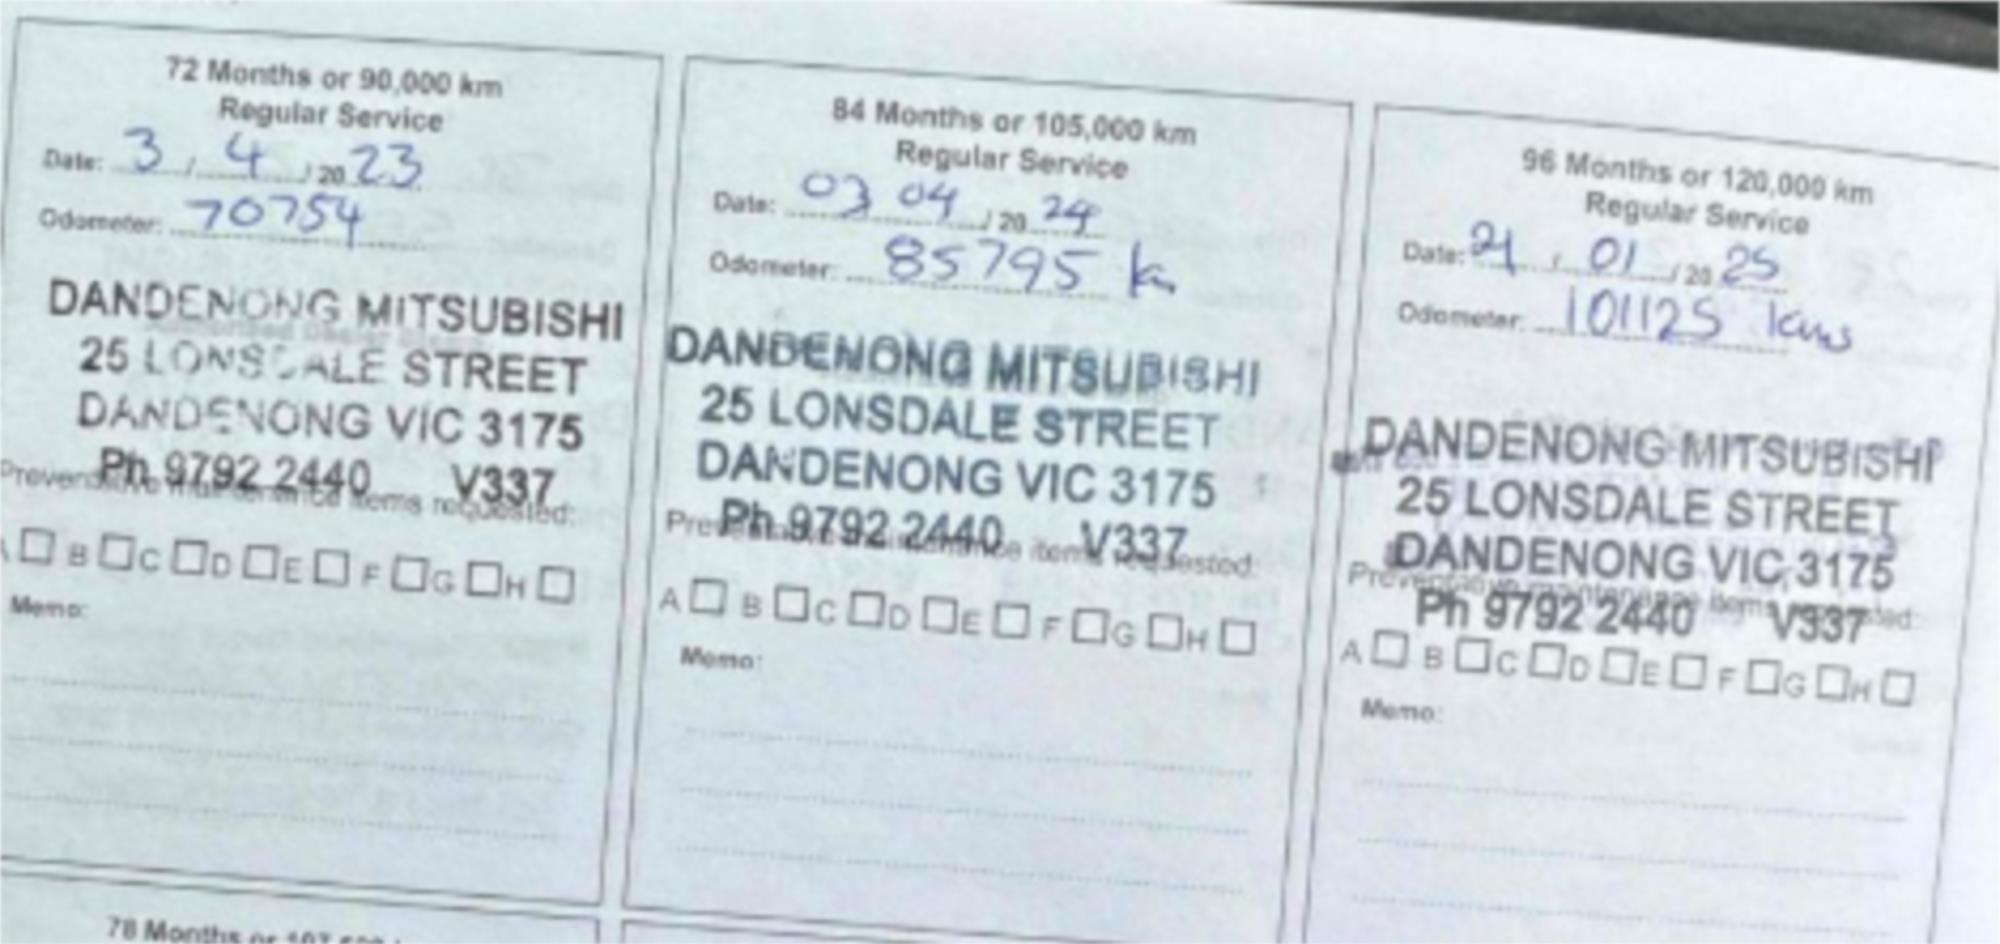 72 Months or 90,000 km
Regular Service
Date: 3 / 4 / 20 23
Odometer: 70754
DANDENONG MITSUBISHI
25 LONSDALE STREET
DANDENONG VIC 3175
Ph 9792 2440 V337
Preventative maintenance items requested:
A B C D E F G H
Memo:
84 Months or 105,000 km
Regular Service
Date: 03 04 / 20 24
Odometer: 85795 k
DANDENONG MITSUBISHI
25 LONSDALE STREET
DANDENONG VIC 3175
Ph 9792 2440 V337
Preventative maintenance items requested:
A B C D E F G H
Memo:
96 Months or 120,000 km
Regular Service
Date: 21 / 01 / 20 25
Odometer: 101125 kms
DANDENONG MITSUBISHI
25 LONSDALE STREET
DANDENONG VIC 3175
Ph 9792 2440 V337
Preventative maintenance items requested:
A B C D E F G H
Memo:
78 Months or